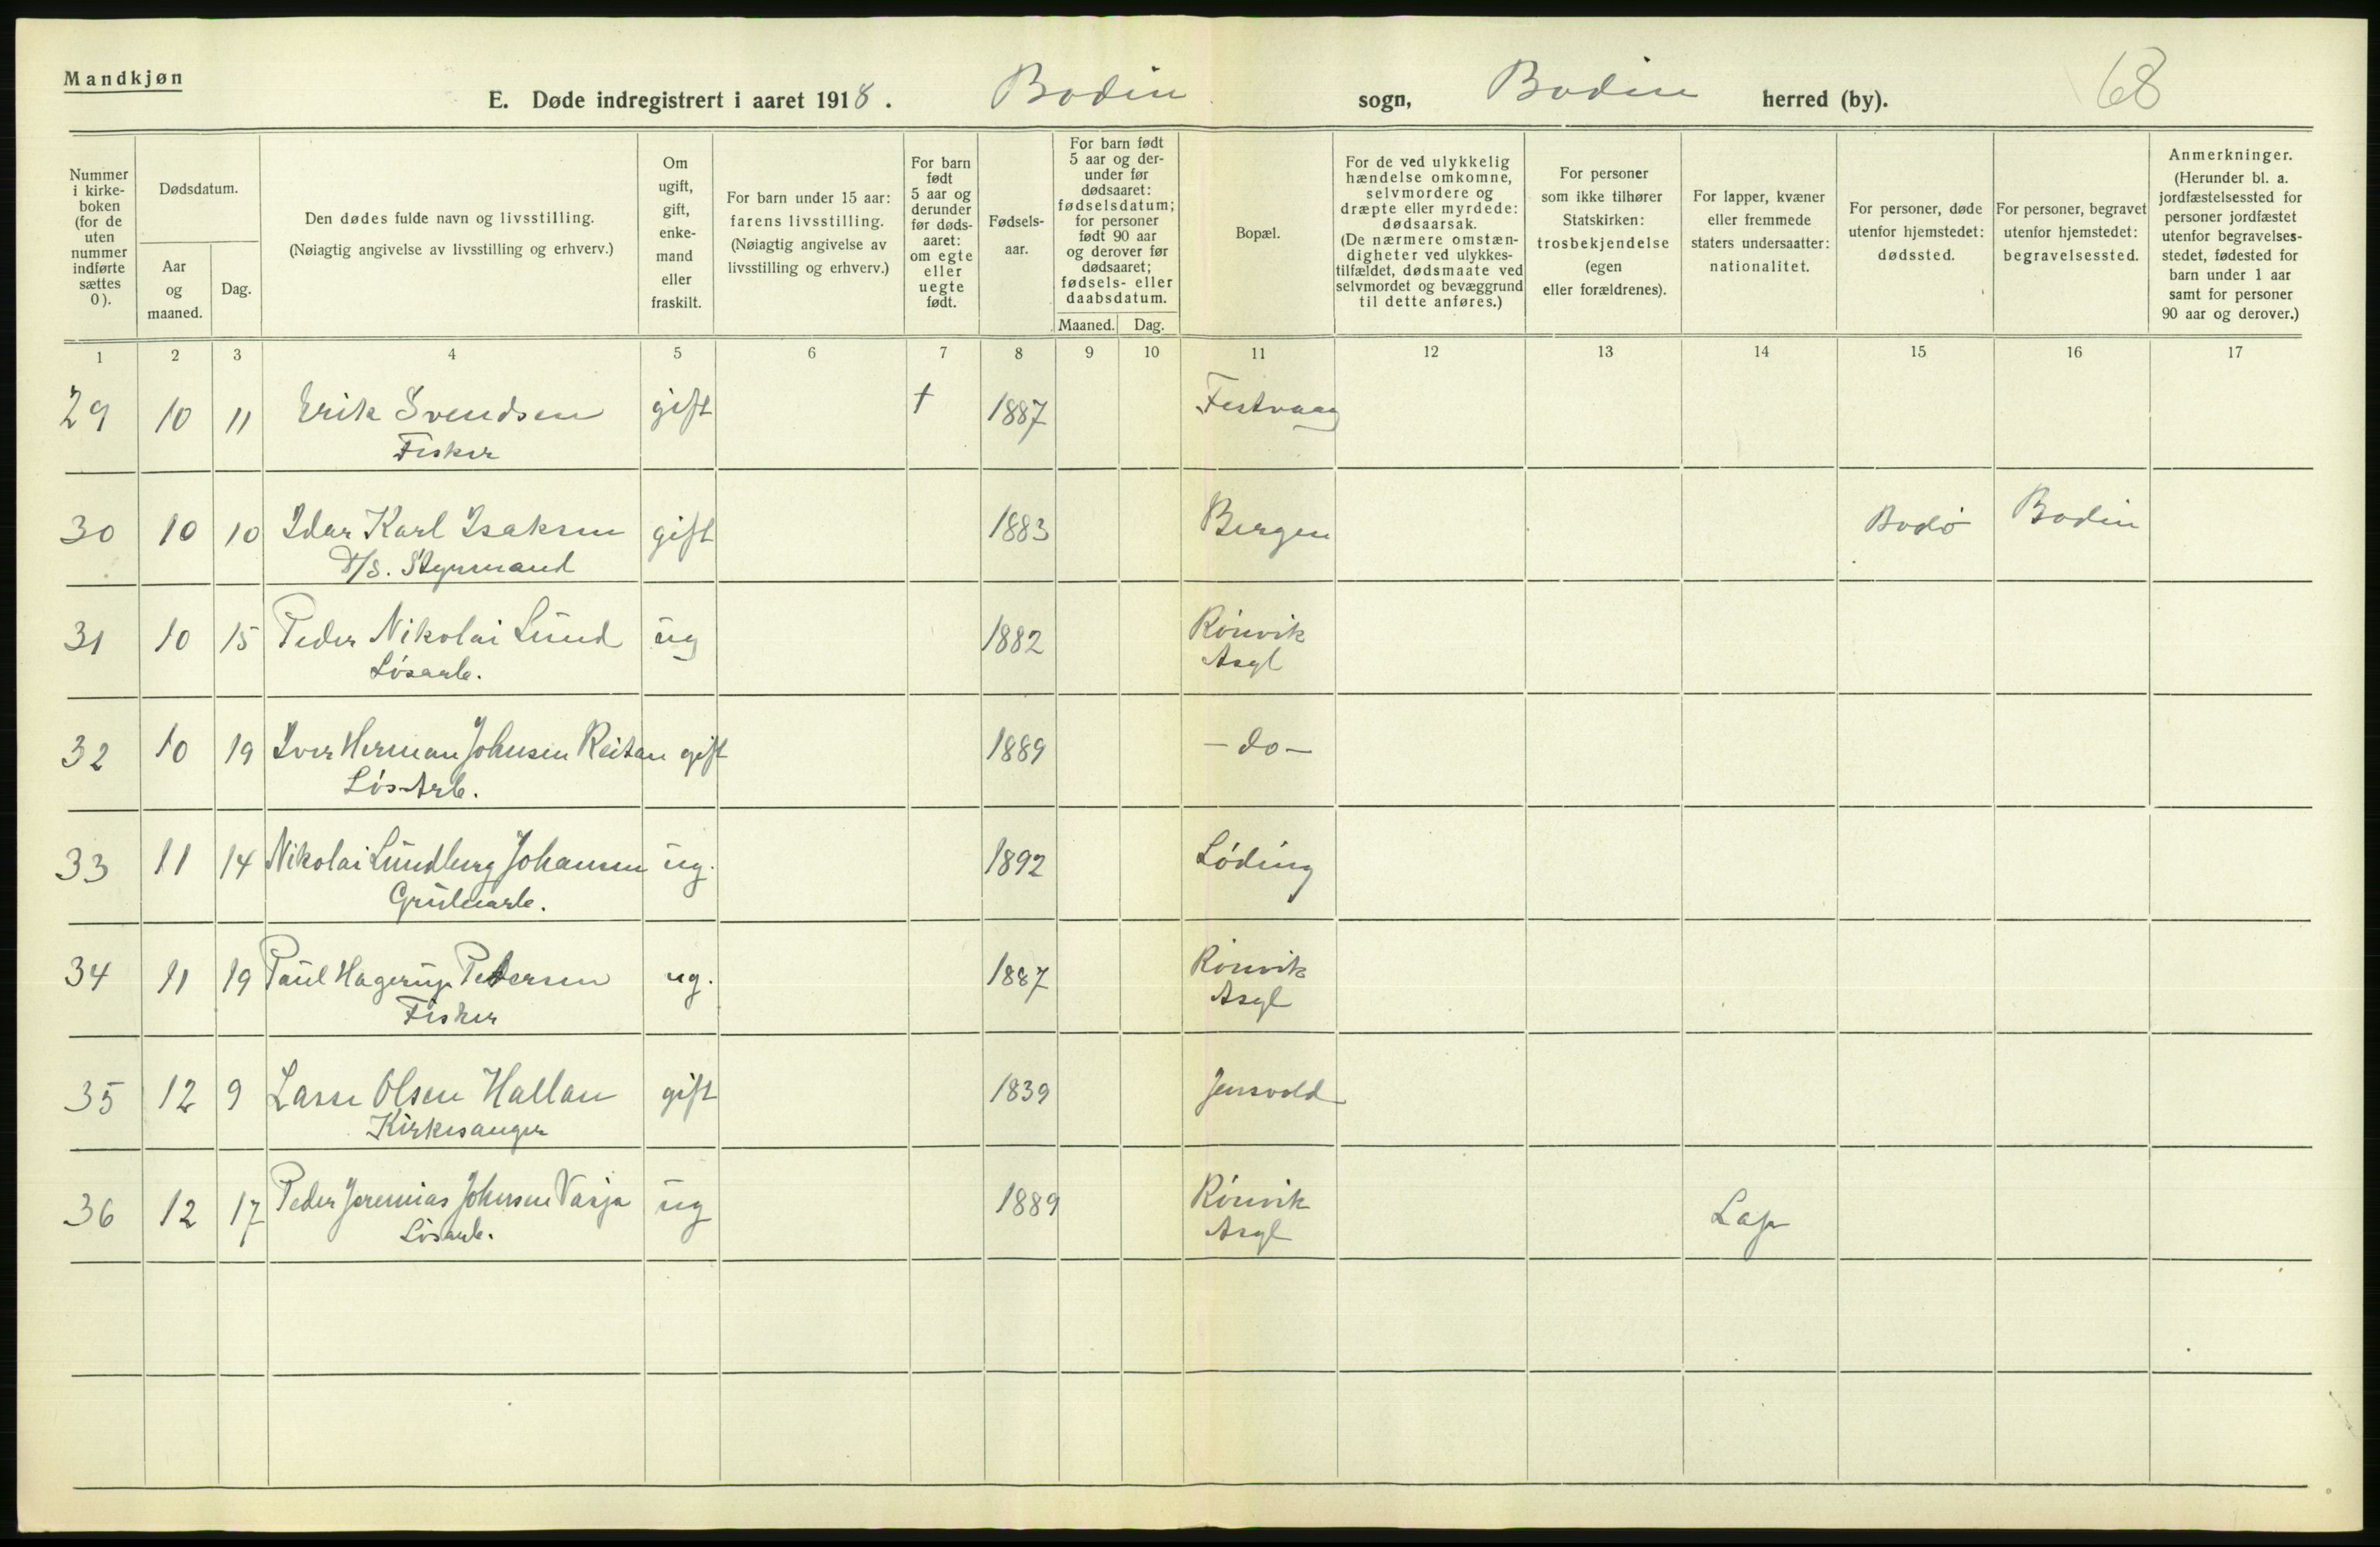 Mandkjøn
E. Døde indregistrert i aaret 1918. Bodin sogn, Bodin herred (by). 68
Nummer i kirkeboken (for de uten nummer indførte sættes 0).
Dødsdatum.
Aar og maaned.
Dag.
Den dødes fulde navn og livsstilling.
(Nøiagtig angivelse av livsstilling og erhverv.)
Om ugift, gift, enkemand eller fraskilt.
For barn under 15 aar: farens livsstilling.
(Nøiagtig angivelse av livsstilling og erhverv.)
For barn født 5 aar og derunder før dødsaaret: om egte eller uegte født.
Fødselsaar.
For barn født 5 aar og derunder før dødsaaret: fødselsdatum; for personer født 90 aar og derover før dødsaaret; fødsels- eller daabsdatum.
Maaned. Dag.
Bopæl.
For de ved ulykkelig hændelse omkomne, selvmordere og dræpte eller myrdede: dødsaarsak.
(De nærmere omstændigheter ved ulykkestilfældet, dødsmaate ved selvmordet og bevæggrund til dette anføres.)
For personer som ikke tilhører Statskirken: trosbekjendelse (egen eller forældrenes).
For lapper, kvæner eller fremmede staters undersaatter: nationalitet.
For personer, døde utenfor hjemstedet: dødssted.
For personer, begravet utenfor hjemstedet: begravelsessted.
Anmerkninger.
(Herunder bl. a. jordfæstelsessted for personer jordfæstet utenfor begravelsesstedet, fødested for barn under 1 aar samt for personer 90 aar og derover.)
1 2 3 4 5 6 7 8 9 10 11 12 13 14 15 16 17
29 10 11 Erik Svendsen gift † 1887 Festvaag
Fisker
30 10 10 Idar Karl Isaksen gift 1883 Bergen Bodø Bodin
D/S. Styrmand
31 10 15 Peder Nikolai Lund ug 1882 Rönvik
Løsarb. Asyl
32 10 19 Iver Herman Johnsen Reitan gift 1889 - do -
Løs Arb.
33 11 14 Nikolai Lundberg Johansen ug. 1892 Løding
Grubearb.
34 11 19 Paul Hagerup Petersen ug. 1887 Rönvik
Fisker Asyl
35 12 9 Lasse Olsen Hallan gift 1839 Jensvold
Kirkesanger
36 12 17 Peder Jeremias Johnsen Vasja ug 1889 Rönvik Lap
Løsarb. Asyl